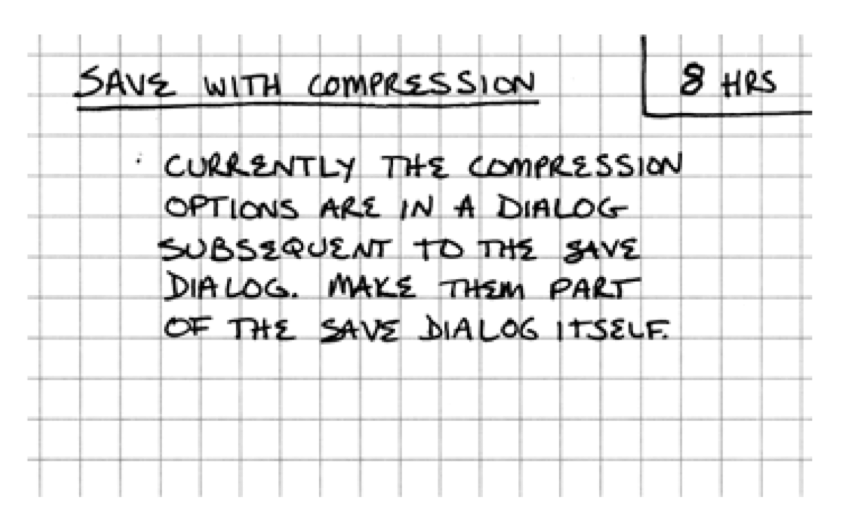 SAVE WITH COMPRESSION
8 HRS
CURRENTLY THE COMPRESSION
OPTIONS ARE IN A DIALOG
SUBSEQUENT TO THE SAVE
DIALOG. MAKE THEM PART
OF THE SAVE DIALOG ITSELF.